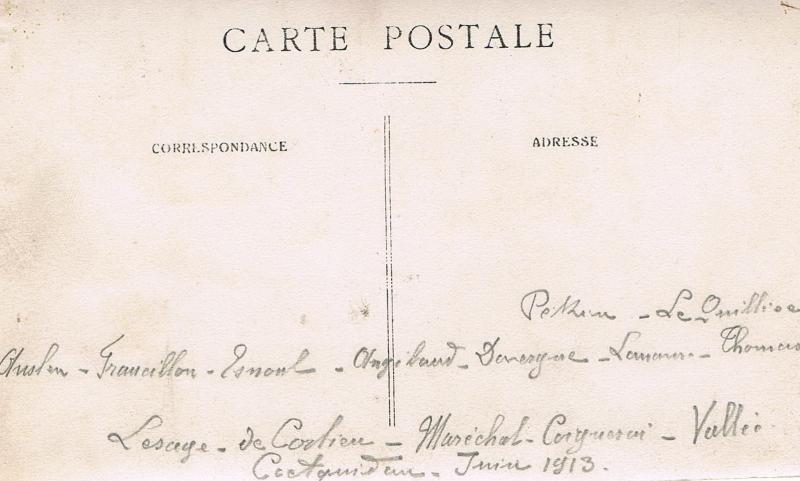 CARTE POSTALE
CORRESPONDANCE
ADRESSE
Pékin - Le Quillioc
Francillon - Esnoul - Angibaud - Davergne - Lamarre - Thomas
Lesage - de Corlieu - Maréchal - Corguerai - Vallée
Coetquidan - Juin 1913.